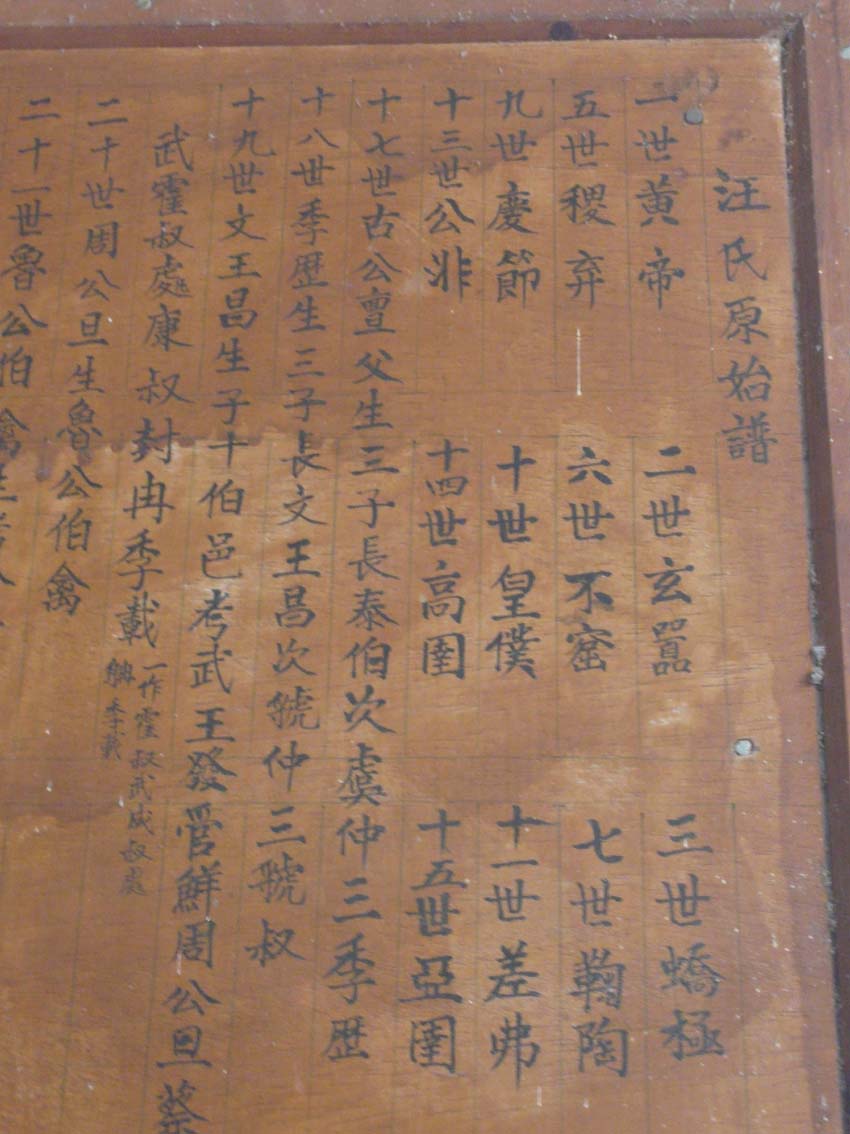 汪氏原始譜
一世黄帝 二世玄嚣 三世蟜極
五世稷弃 六世不窋 七世鞠陶
九世慶節 十世皇僕 十一世差弗
十三世公非 十四世高圉 十五世亞圉
十七世古公亶父生三子長泰伯次虞仲三季歴
十八世季歴生三子長文王昌次虢仲三虢叔
十九世文王昌生子十伯邑考武王發管鮮周公旦蔡
武霍叔處康叔封冉季載
一作霍叔武成叔處
季載
二十世周公旦生魯公伯禽
二十一世魯公伯禽生